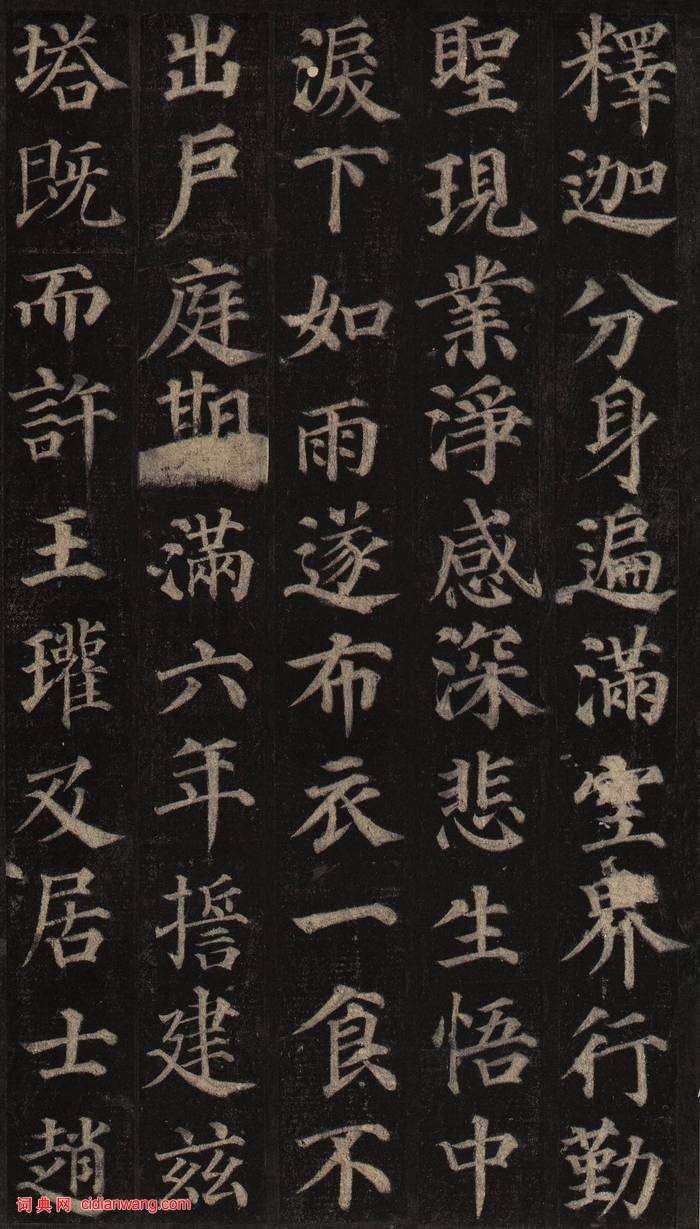 釋迦分身遍滿空界行勤
聖現業淨感深悲生悟中
淚下如雨遂布衣一食不
出戶庭期滿六年誓建茲
塔既而許王瓘及居士趙
词典网 cidianwang.com